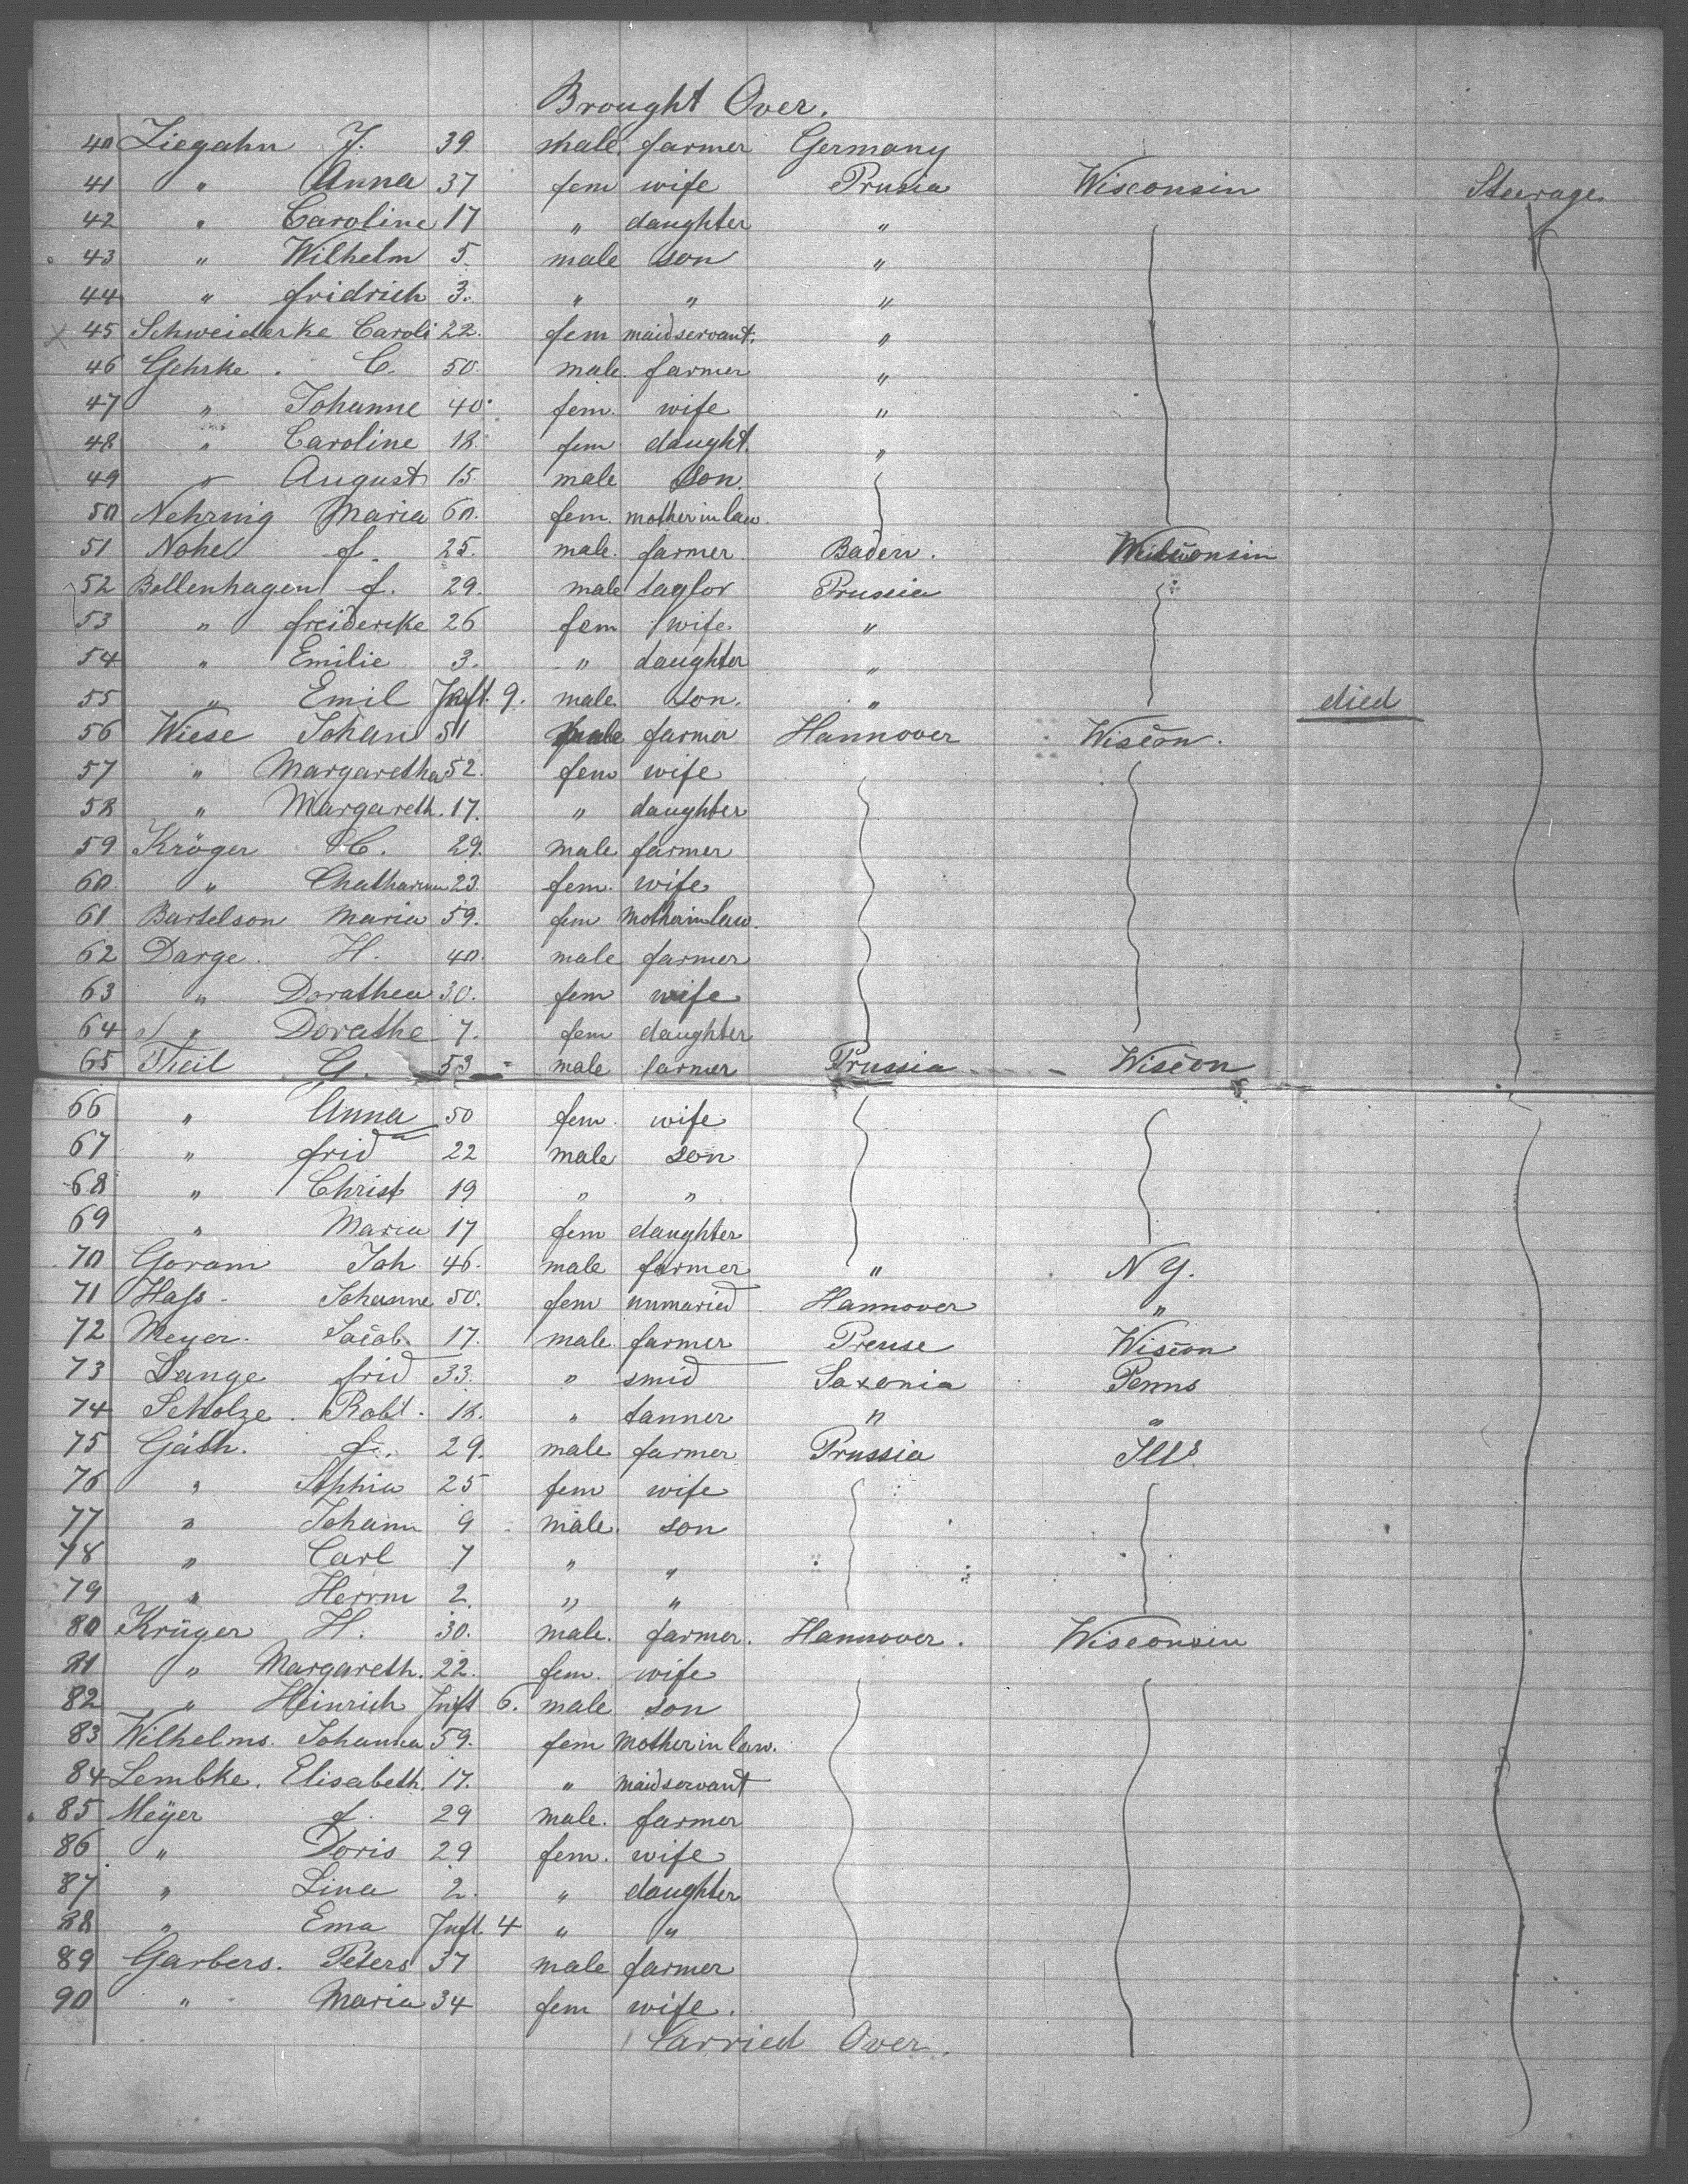 Brought Over.
40 Ziegahn J. 39. male farmer Germany
41 " Anna 37 fem wife Prusia Wisconsin Steerage.
42 " Caroline 17 " daughter "
43 " Wilhelm 5. male son "
44 " fridrich 3. " " "
45 Schweiderke Caroli 22. fem maidservant. "
46 Gehrke . C. 50. male. farmer "
47 " Johanne 40. fem. wife "
48 " Caroline 18. fem daught. "
49 " August 15. male son.
50 Nehring Maria 60. fem. mother in law.
51 Nohe f. 25. male. farmer Baden. Wisconsin
52 Bollenhagen f. 29. male taylor Prussia
53 " freidericke 26 fem wife. "
54 " Emilie 3. " daughter "
55 " Emil Inft. 9. male. son. " died
56 Wiese Johan 51 male farmer Hannover Wiscon.
57 " Margaretha 52. fem wife
58 " Margareth. 17. " daughter
59 Kröger C. 29. male farmer
60 " Chatharina 23. fem. wife
61 Bartelson Maria 59. fem mother in law.
62 Darge. H. 40. male farmer
63 " Dorathea 30. fem wife
64 " Dorathe 7. fem daughter
65 Theil G. 53 male farmer Prussia Wiscon
66 " Anna 50 fem. wife
67 " frid 22 male son
68 " Christ 19 " "
69 " Maria 17 fem daughter
70 Goram Joh 46. male farmer " N Y.
71 Hass Johanne 50. fem unmaried Hannover "
72 Meyer. Jacob 17. male farmer Preuse Wiscon
73 Lange frid 33. " smid Saxonia Penns
74 Scholze. Robt. 18. " tanner " "
75 Gäth. f. 29. male farmer Prussia Ills
76 " Sophia 25 fem wife
77 " Johann 9 male. son
78 " Carl 7 " "
79 " Herrm 2. " "
80 Krüger H. 30. male. farmer. Hannover. Wisconsin
81 " Margareth. 22. fem. wife
82 " Heinrich Inft 6. male son
83 Wilhelms. Johanna 59. fem Mother in law.
84 Lembke. Elisabeth. 17. " maidservant
85 Meÿer f. 29 male. farmer
86 " Doris 29 fem. wife
87 " Lina 2. " daughter
88 " Ema Inft. 4 " "
89 Garbers. Peters 37 male farmer
90 " Maria 34 fem wife.
Carried Over.